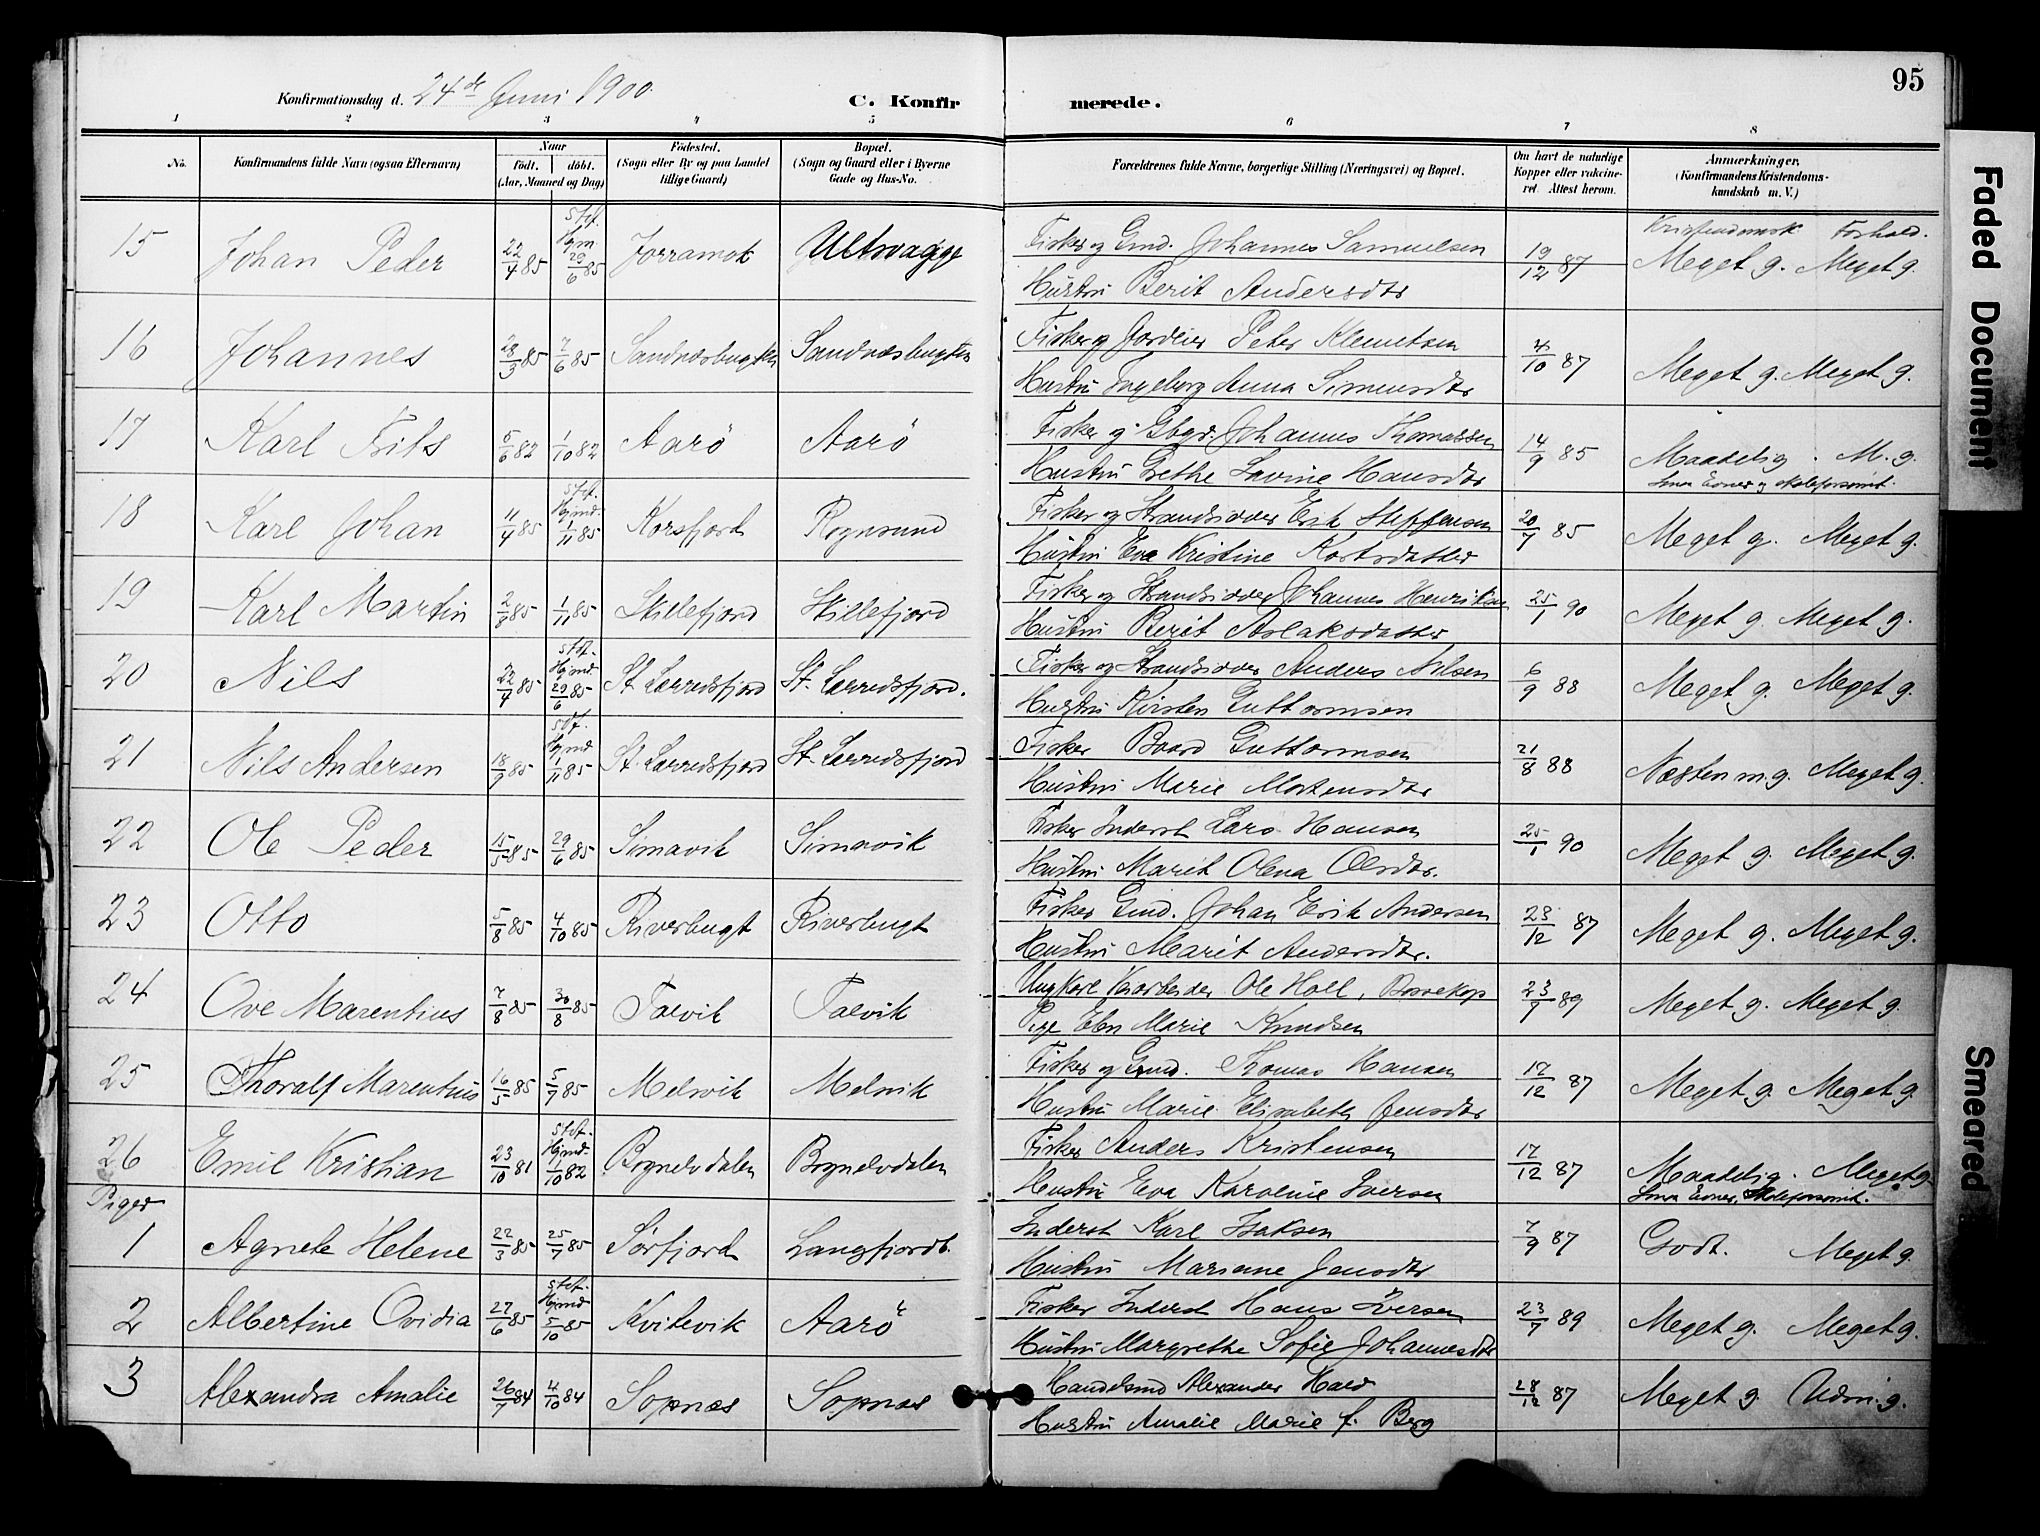 95
Konfirmationsdag d. 24de Juni 1900.
C. Konfirmerede.
1 2 3 4 5 6 7 8
No. Konfirmandens fulde Navn (ogsaa Efternavn) Naar født. døbt. (Aar, Maaned og Dag) Fødested. (Sogn eller By og paa Landet tillige Gaard) Bopæl. (Sogn og Gaard eller i Byerne Gade og Hus-No. Forældrenes fulde Navne, borgerlige Stilling (Næringsvei) og Bopæl. Om havt de naturlige Kopper eller vaccineret. Attest herom. Anmærkninger. (Konfirmandens Kristendomskundskab m. V.)
Kristendomsk Forhold.
15 Johan Peder 22/4 85 Stdf. Hjm 29/6 85 Jorramok Ultsvagge Fisker og Gmd. Johannes Samuelsen 19/12 87 Meget g. Meget g.
Hustru Berit Andersdtr
16 Johannes 28/3 85 7/6 85 Sandnæsbugten Sandnæsbugten Fisker og Jordeier Peter Klemetsen 4/10 87 Meget g. Meget g.
Hustru Ingeborg Anna Simensdtr
17 Karl Frits 5/6 82 1/10 82 Aarö Aarö Fisker og Gbgr. Johannes Thomassen 14/9 85 Maadelig. M. g.
Hustru Grethe Lavine Hansdtr Smaa Evner og Skoleforsømt.
18 Karl Johan 11/4 85 Stdf. Hjmd. 1/11 85 Korsfjord Rognsund Fisker og Strandsidder Erik Steffensen 20/7 85 Meget g. Meget g.
Hustru Eva Kristine
19 Karl Martin 2/8 85 1/11 85 Skillefjord Skillefjord Fisker og Strandsidder Johannes Henriksen 25/1 90 Meget g. Meget g.
Hustru Berit Aslaksdatter
20 Nils 22/4 85 Stdf. Hjmd 29/6 85 St. Lerredsfjord St. Lerredsfjord. Fisker og Strandsidder Anders Nilsen 6/9 88 Meget g. Meget g.
Hustru Kirsten Guttormsen
21 Nils Andersen 18/9 85 Stdf. Hjmd 1/11 85 St. Lerredsfjord St. Lerredsfjord Fisker Baard Guttormsen 21/8 88 Næsten m.g. Meget g.
Hustru Marie Mortensdtr
22 Ole Peder 15/5 85 29/6 85 Simavik Simavik Fisker Inderst Lars Hansen 25/1 90 Meget g. Meget g.
Hustru Marit Olena Olsdtr.
23 Otto 5/8 85 4/10 85 Riverbugt Riverbugt Fisker Gmd. Johan Erik Andersen 23/12 87 Meget g. Meget g.
Hustru Marit Andersdtr.
24 Ove Marentius 7/8 85 30/8 85 Talvik Talvik Ungkarl Ole Holl, Bossekop 23/7 89 Meget g. Meget g.
Pige Marie Knudsen
25 Thoralf Marentius 16/5 85 5/7 85 Melsvik Melsvik Fisker og Gmd. Thomas Hansen 17/12 87 Meget g. Meget g.
Hustru Marie Elisabeth Jensdtr
26 Emil Kristian 23/10 81 Stdf. Hjmd. 1/10 82 Bognelvdalen Bognelvdalen Fisker Anders Kristensen 17/12 87 Maadelig. Meget g.
Hustru Eva Karoline Iversen Smaa Evner, Skoleforsømt.
Piger
1 Agnete Helene 22/3 85 25/7 85 Sørfjord Langfjordb. Inderst Karl Isaksen 7/9 87 Godt. Meget g.
Hustru Mariane Jensdtr
2 Albertine Ovidia 27/6 85 Stdf. Hjmd 5/10 85 Kvitevik Aarö Fisker Inderst Hans Iversen 23/7 89 Meget g. Meget g.
Hustru Margrethe Sofie Johannesdtr
3 Alexandra Amalie 26/7 84 4/10 84 Sopnæs Sopnæs Handelsmd Alexander Hald 28/12 87 Meget g. Udm. g.
Hustru Amalie Marie f. Berg
Faded Document
Smeared